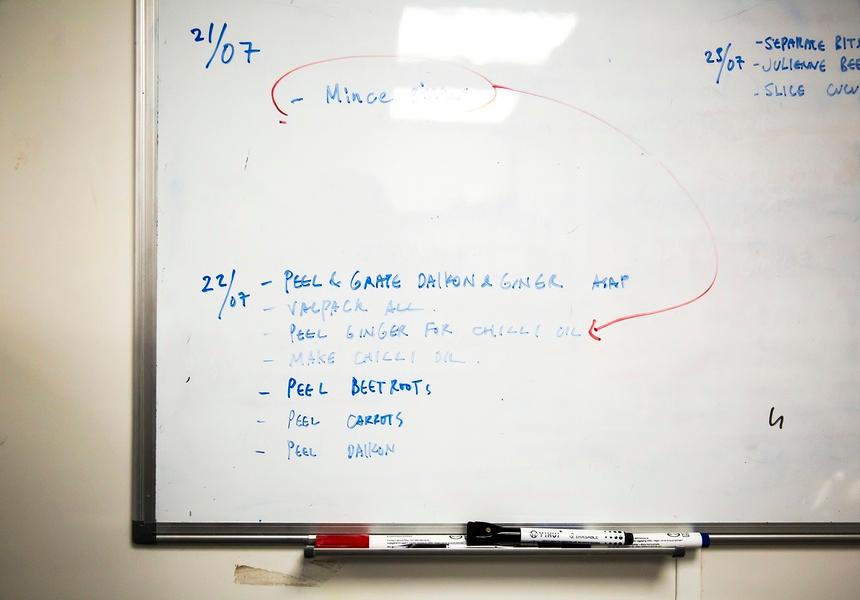 21/07
- Mince
22/07 - PEEL & GRATE DAIKON & GINER ASAP
- VACPACK ALL.
- PEEL GINGER FOR CHILLI OIL
- MAKE CHILLI OIL.
- PEEL BEETROOTS
- PEEL CARROTS
- PEEL DAIKON
23/07 - SEPARATE BITS
- JULIENNE BEE
- SLICE CUCU
4
YIHUI ERASABLE